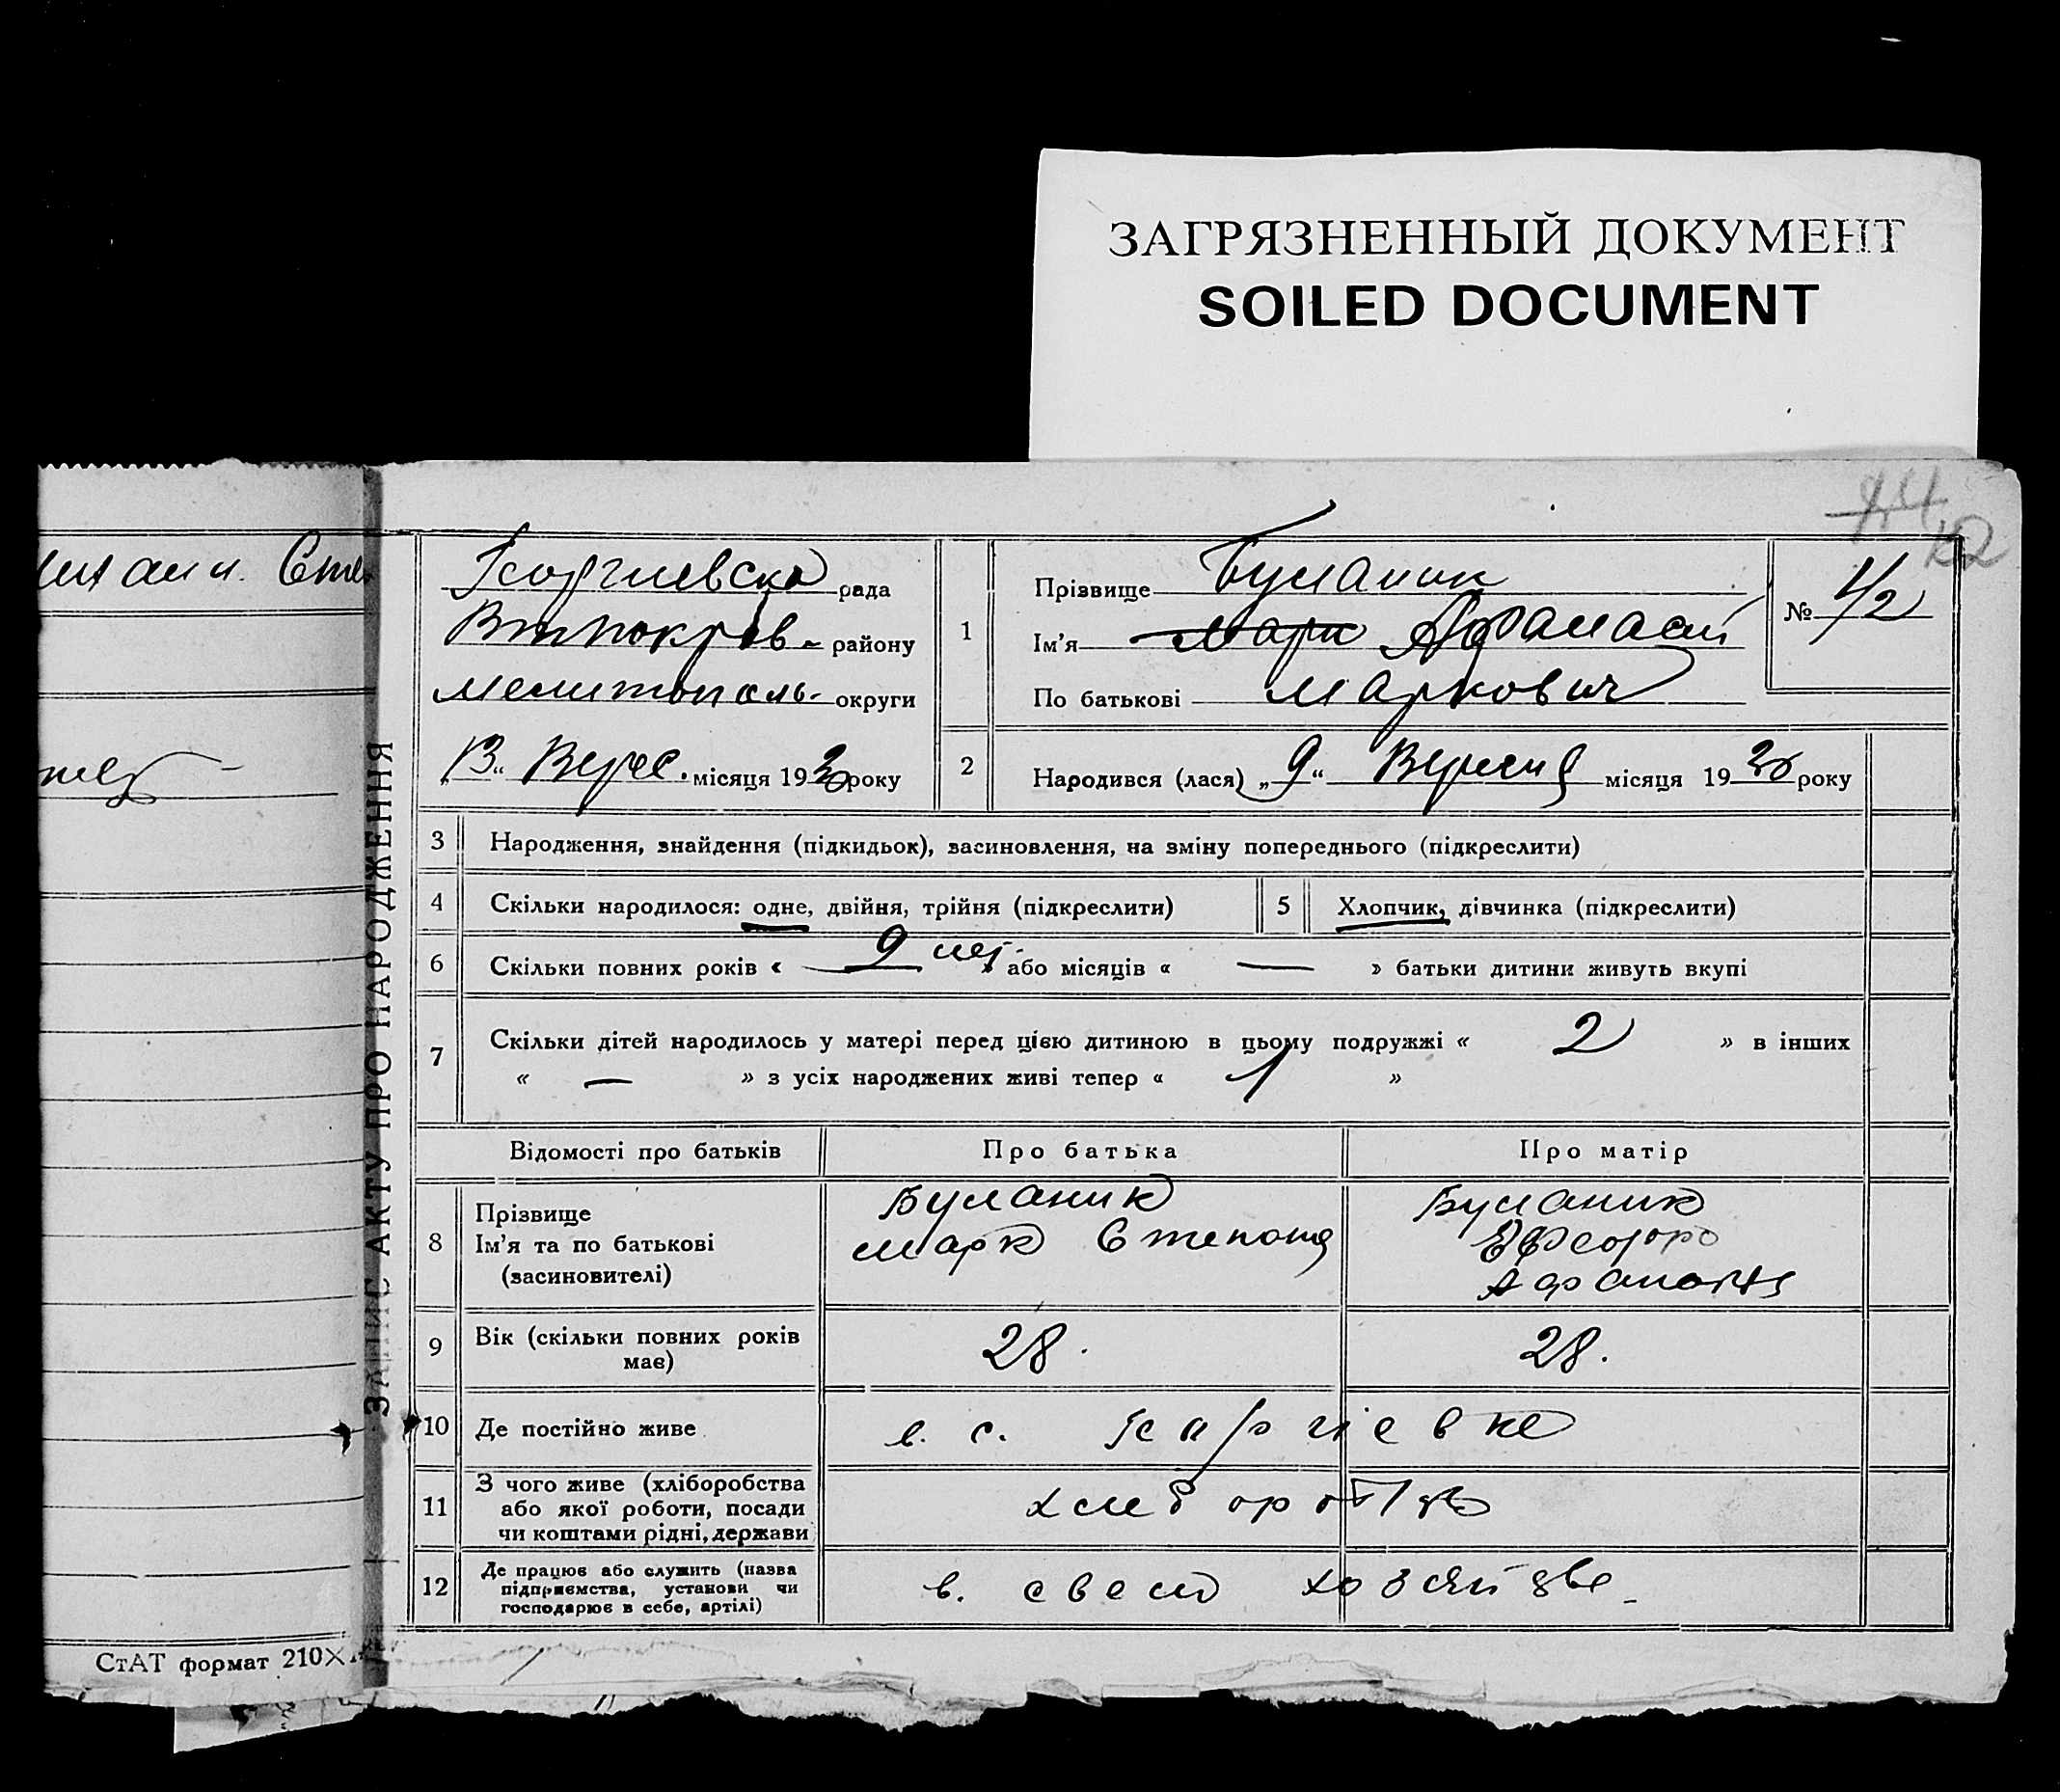 ЗАГРЯЗНЕННЫЙ ДОКУМЕНТ
SOILED DOCUMENT
ЗАПИС АКТУ ПРО НАРОДЖЕННЯ
рада
району
округи
„13“ Верес. місяця 1920 року
1
Прізвище Буланик
Ім’я Марк Афанасий
По батькові Маркович
№
2
Народився (лася) „9“ Вересня місяця 19 року
3 Народження, знайдення (підкидьок), засиновлення, на зміну попереднього (підкреслити)
4 Скільки народилося: одне, двійня, трійня (підкреслити)
5 Хлопчик, дівчинка (підкреслити)
6 Скільки повних років « 9 лет » або місяців « — » батьки дитини живуть вкупі
7 Скільки дітей народилось у матері перед цією дитиною в цьому подружжі « 2 » в інших
« — » з усіх народжених живі тепер « 1 »
Відомості про батьків
Про батька
Про матір
8
Прізвище
Ім’я та по батькові
(засиновителі)
Буланик
Марк
Буланик
9
Вік (скільки повних років
має)
28.
28.
10 Де постійно живе
в. с.
11
З чого живе (хліборобства
або якої роботи, посади
чи коштами рідні, держави
12
Де працює або служить (назва
підприємства, установи чи
господарює в себе, артілі)
в. своем хозяйстве
СтАТ формат 210×